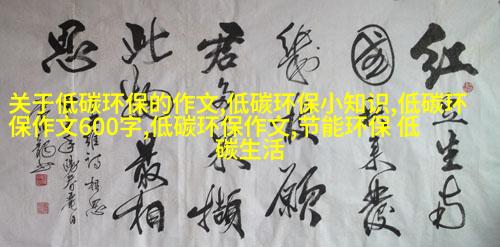 关于低碳环保的作文,低碳环保小知识,低碳环
保作文600字,低碳环保作文,节能环保 低
碳生活
红豆生南
國春来發
幾枝願
君多采撷
此物最相
思